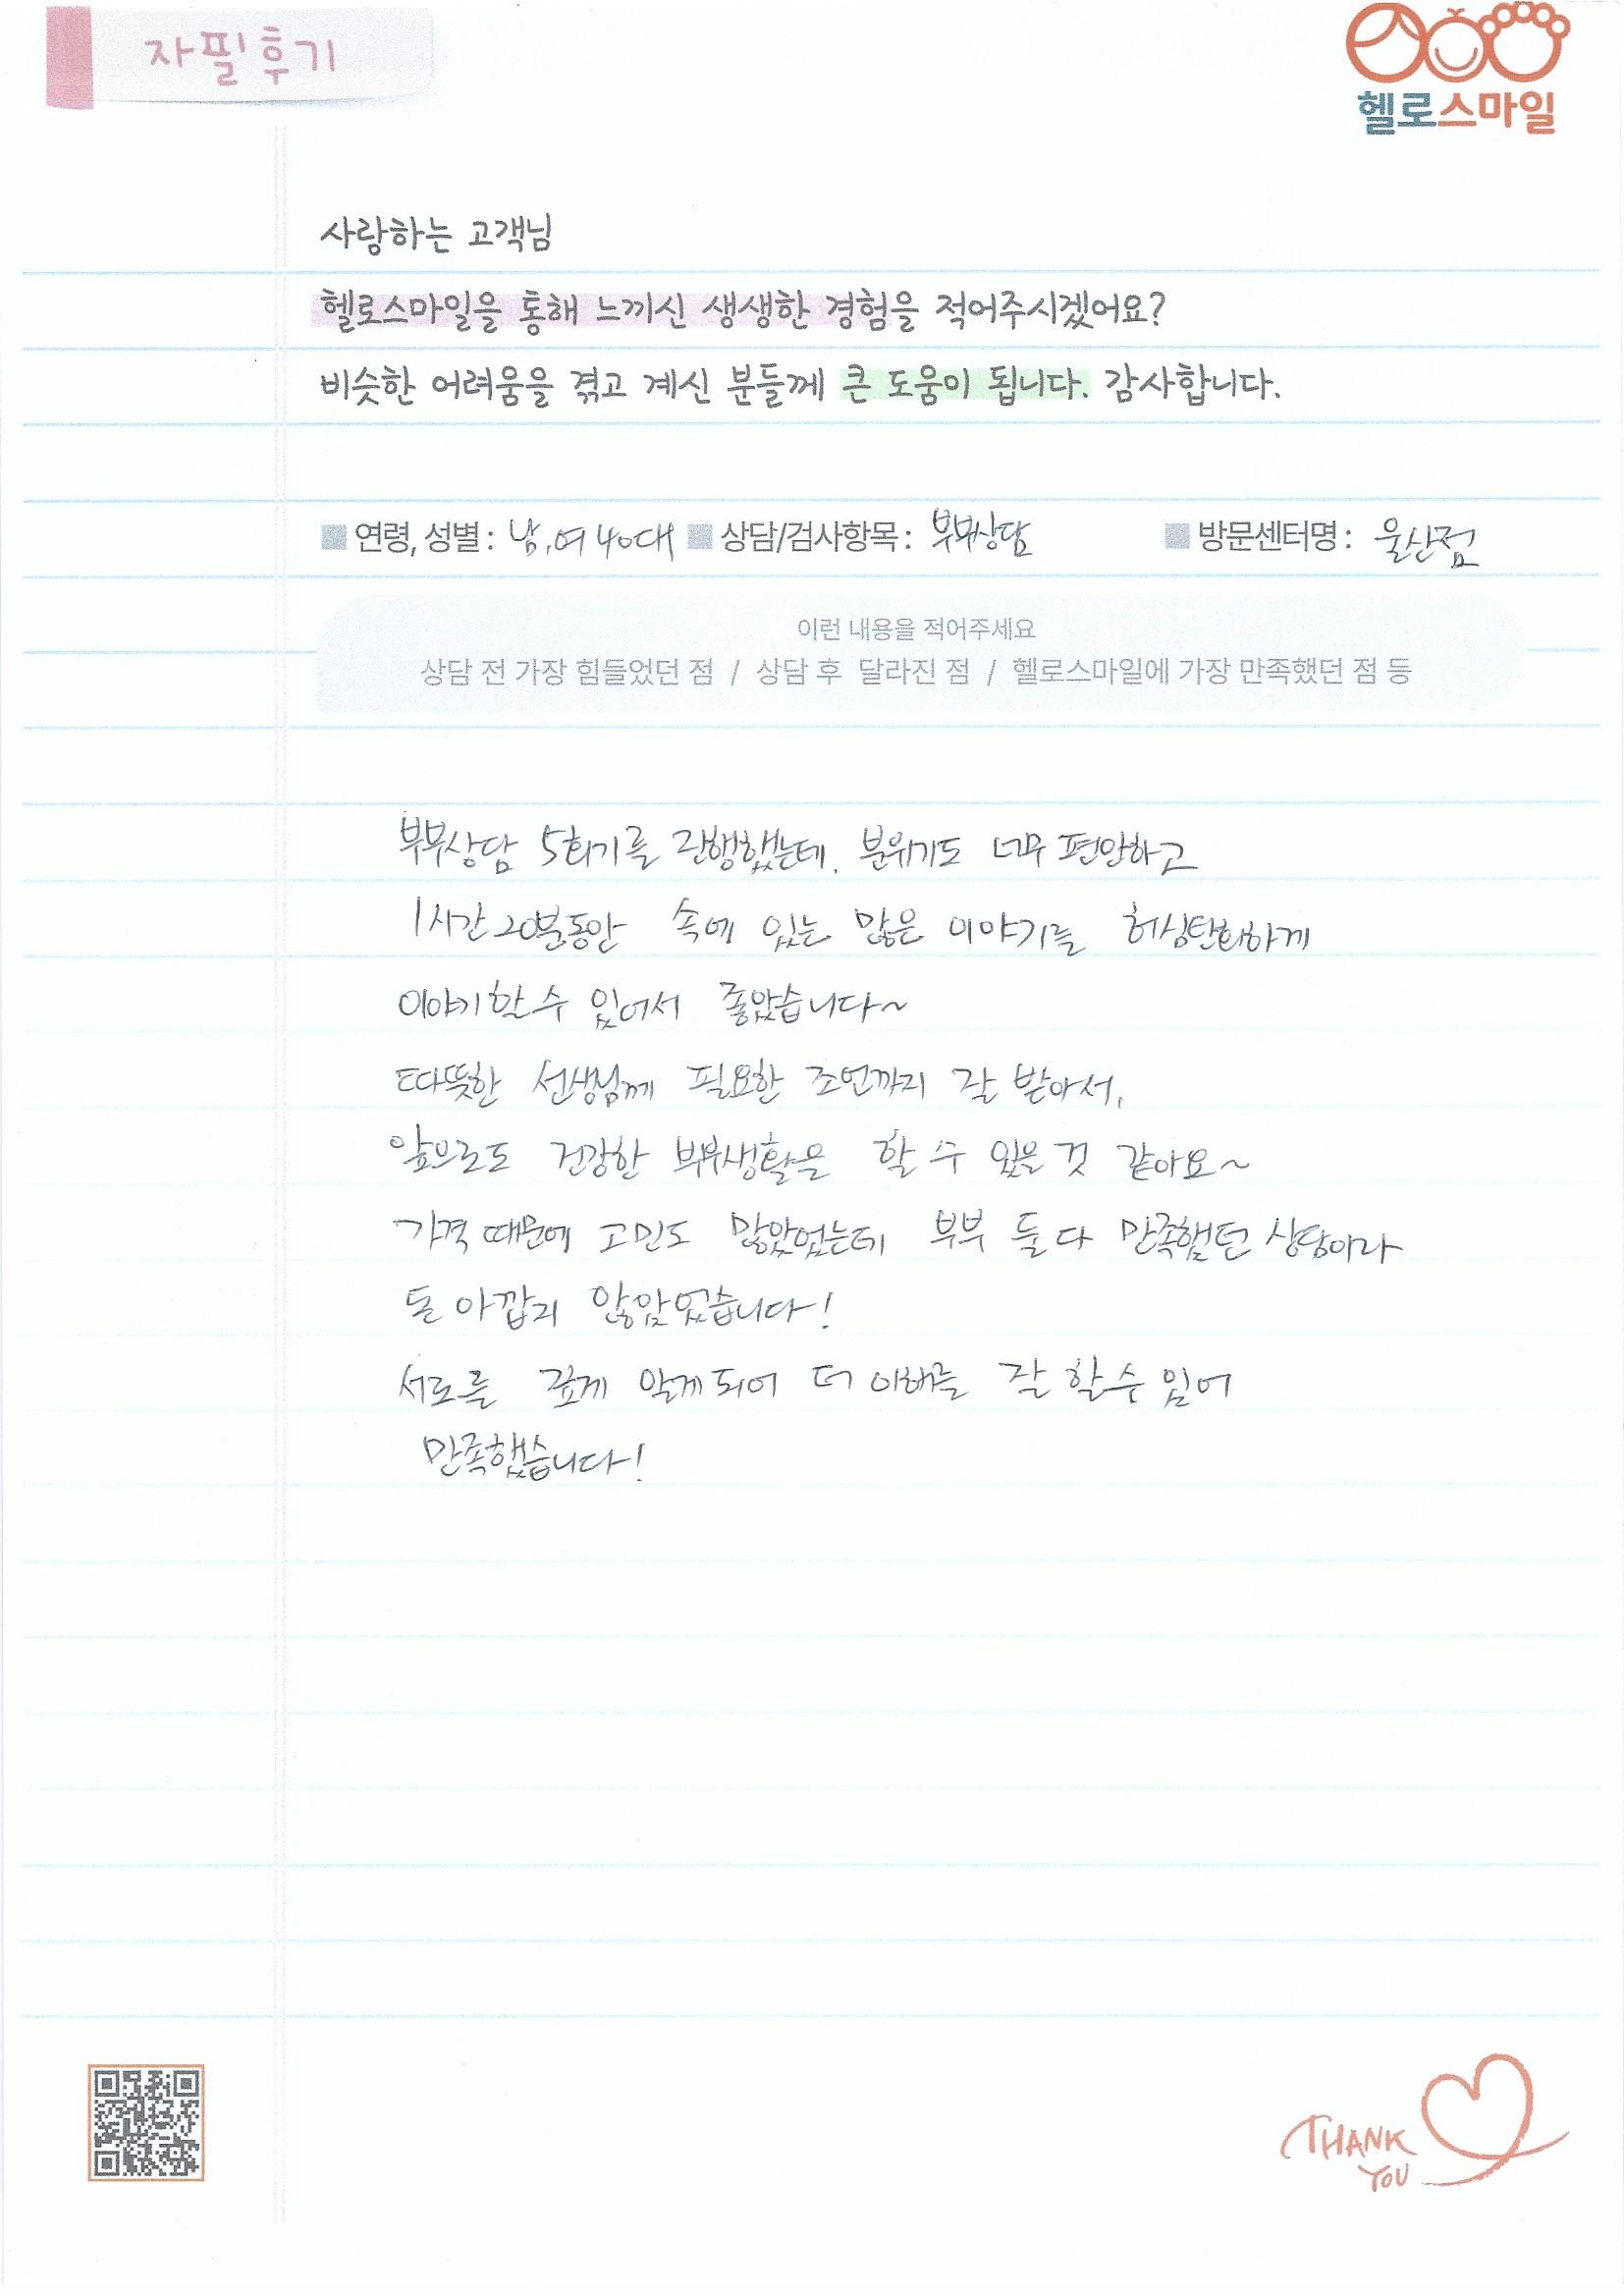 자필후기
헬로스마일
사랑하는 고객님
헬로스마일을 통해 느끼신 생생한 경험을 적어주시겠어요?
비슷한 어려움을 겪고 계신 분들께 큰 도움이 됩니다. 감사합니다.
연령, 성별 : 남,여 40대 상담/검사항목 : 부부상담 방문센터명 : 울산점
이런 내용을 적어주세요
상담 전 가장 힘들었던 점 / 상담 후 달라진 점 / 헬로스마일에 가장 만족했던 점 등
부부상담 5회기를 진행했는데. 분위기도 너무 편안하고
1시간20분동안 속에 있는 많은 이야기를 허심탄회하게
이야기할수 있어서 좋았습니다~
따뜻한 선생님께 필요한 조언까지 잘 받아서,
앞으로도 건강한 부부생활을 할 수 있을 것 같아요~
가격 때문에 고민도 많았었는데 부부 둘 다 만족했던 상담이라
돈 아깝지 않았었습니다!
서로를 깊게 알게되어 더 이해를 잘 할수 있어
만족했습니다!
THANK
YOU